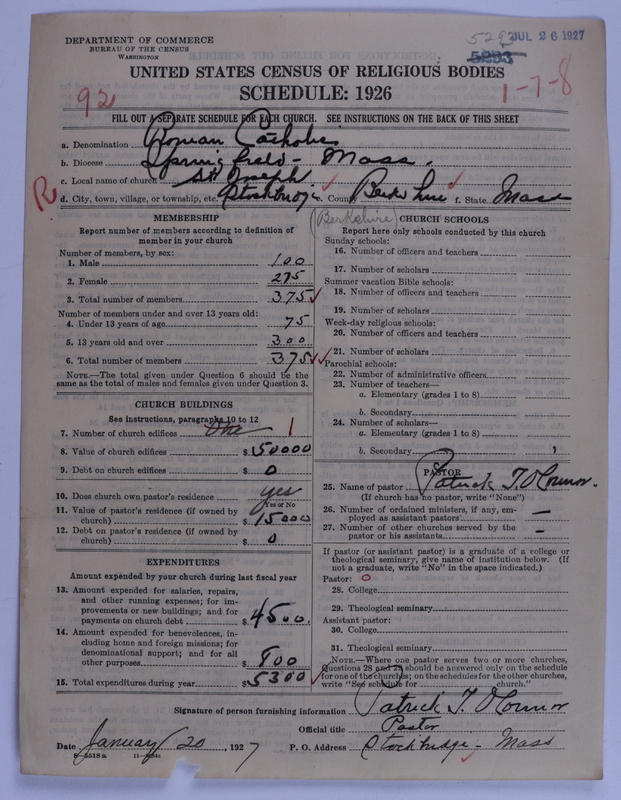 DEPARTMENT OF COMMERCE
BUREAU OF THE CENSUS
WASHINGTON
5293 JUL 26 1927
5293
UNITED STATES CENSUS OF RELIGIOUS BODIES
SCHEDULE: 1926
92
1-7-8
FILL OUT A SEPARATE SCHEDULE FOR EACH CHURCH. SEE INSTRUCTIONS ON THE BACK OF THIS SHEET
a. Denomination Roman Catholic
b. Diocese Springfield - Mass.
c. Local name of church St Joseph
R
d. City, town, village, or township, etc. Stockbridge e. County Berkshire f. State Mass
(Berkshire)
MEMBERSHIP
Report number of members according to definition of
member in your church
Number of members, by sex:
1. Male 100
2. Female 275
3. Total number of members 375
Number of members under and over 13 years old:
4. Under 13 years of age 75
5. 13 years old and over 300
6. Total number of members 375
NOTE.—The total given under Question 6 should be the
same as the total of males and females given under Question 3.
CHURCH BUILDINGS
See instructions, paragraphs 10 to 12
7. Number of church edifices One 1
8. Value of church edifices $50000
9. Debt on church edifices $ 0
10. Does church own pastor's residence yes
Yes or No
11. Value of pastor's residence (if owned by
church) $15000
12. Debt on pastor's residence (if owned by
church) $ 0
EXPENDITURES
Amount expended by your church during last fiscal year
13. Amount expended for salaries, repairs,
and other running expenses; for im-
provements or new buildings; and for
payments on church debt $4500.
14. Amount expended for benevolences, in-
cluding home and foreign missions; for
denominational support; and for all
other purposes $ 800
15. Total expenditures during year $5300
CHURCH SCHOOLS
Report here only schools conducted by this church
Sunday schools:
16. Number of officers and teachers
17. Number of scholars
Summer vacation Bible schools:
18. Number of officers and teachers
19. Number of scholars
Week-day religious schools:
20. Number of officers and teachers
21. Number of scholars
Parochial schools:
22. Number of administrative officers
23. Number of teachers—
a. Elementary (grades 1 to 8)
b. Secondary
24. Number of scholars—
a. Elementary (grades 1 to 8)
b. Secondary
PASTOR
25. Name of pastor Patrick T. O'Connor.
(If church has no pastor, write "None")
26. Number of ordained ministers, if any, em-
ployed as assistant pastors —
27. Number of other churches served by the
pastor or his assistants —
If pastor (or assistant pastor) is a graduate of a college or
theological seminary, give name of institution below. (If
not a graduate, write "No" in the space indicated.)
Pastor: O
28. College
29. Theological seminary
Assistant pastor:
30. College
31. Theological seminary
NOTE.—Where one pastor serves two or more churches,
Questions 28 and 29 should be answered only on the schedule
for one of the churches; on the schedules for the other churches,
write "See schedule for church."
Signature of person furnishing information Patrick T. O'Connor
Official title Pastor
Date January 20, 1927 P. O. Address Stockbridge - Mass